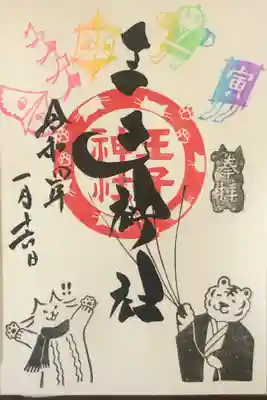 寅
奉拝
王子神社
王子
神社
令和四年
一月十六日
!!